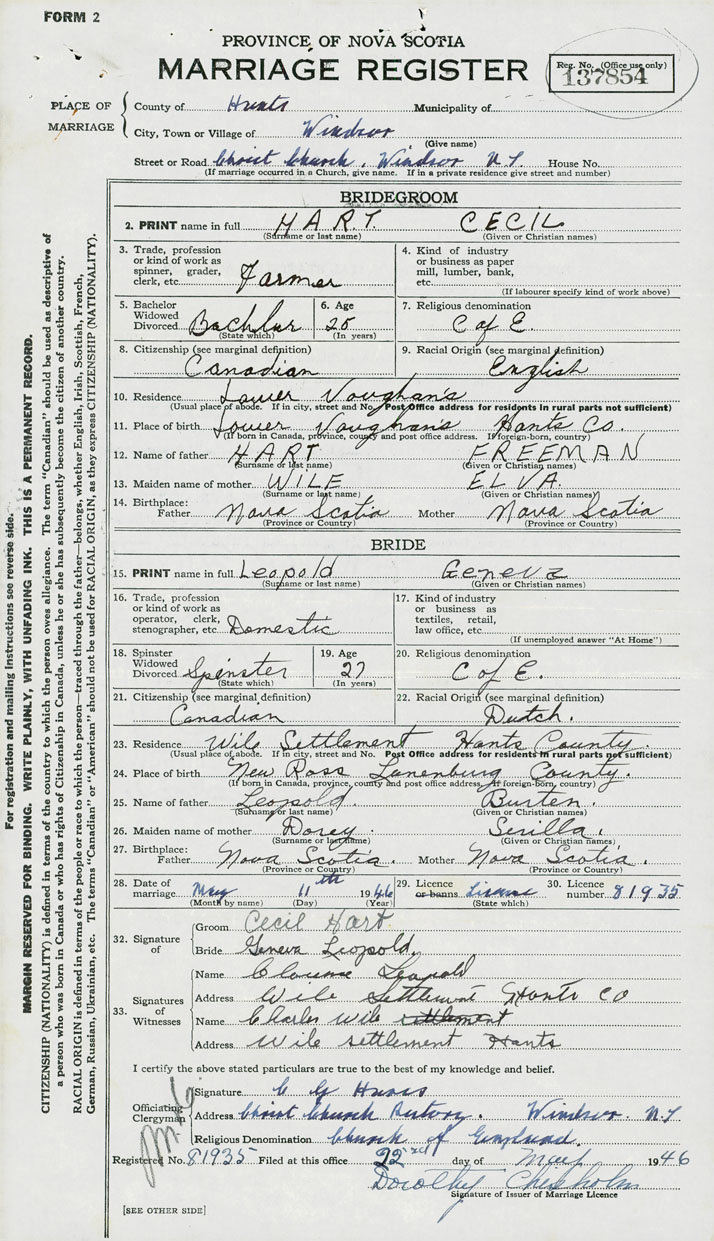 FORM 2
PROVINCE OF NOVA SCOTIA
MARRIAGE REGISTER
Reg. No. (Office use only)
137854
PLACE OF MARRIAGE
County of Hants Municipality of
City, Town or Village of Windsor
(Give name)
Street or Road Christ Church, Windsor N.S. House No.
(If marriage occurred in a Church, give name. If in a private residence give street and number)
BRIDEGROOM
2. PRINT name in full HART CECIL
(Surname or last name) (Given or Christian names)
3. Trade, profession or kind of work as spinner, grader, clerk, etc. Farmer
4. Kind of industry or business as paper mill, lumber, bank, etc.
(If labourer specify kind of work above)
5. Bachelor Widowed Divorced Bachlur (State which)
6. Age 25 (In years)
7. Religious denomination C of E.
8. Citizenship (see marginal definition) Canadian
9. Racial Origin (see marginal definition) English
10. Residence Lower Vaughan's
(Usual place of abode. If in city, street and No. Post Office address for residents in rural parts not sufficient)
11. Place of birth Lower Vaughan's Hants Co.
(If born in Canada, province, county and post office address. If foreign-born, country)
12. Name of father HART FREEMAN
(Surname or last name) (Given or Christian names)
13. Maiden name of mother WILE ELVA
(Surname or last name) (Given or Christian names)
14. Birthplace: Father Nova Scotia Mother Nova Scotia
(Province or Country) (Province or Country)
BRIDE
15. PRINT name in full Leopold Geneva
(Surname or last name) (Given or Christian names)
16. Trade, profession or kind of work as operator, clerk, stenographer, etc. Domestic
17. Kind of industry or business as textiles, retail, law office, etc.
(If unemployed answer "At Home")
18. Spinster Widowed Divorced Spinster (State which)
19. Age 27 (In years)
20. Religious denomination C of E.
21. Citizenship (see marginal definition) Canadian
22. Racial Origin (see marginal definition) Dutch.
23. Residence Wile Settlement Hants County.
(Usual place of abode. If in city, street and No. Post Office address for residents in rural parts not sufficient)
24. Place of birth New Ross Lunenburg County.
(If born in Canada, province, county and post office address. If foreign-born, country)
25. Name of father Leopold. Burten.
(Surname or last name) (Given or Christian names)
26. Maiden name of mother Dorey. Serilla.
(Surname or last name) (Given or Christian names)
27. Birthplace: Father Nova Scotia. Mother Nova Scotia.
(Province or Country) (Province or Country)
28. Date of marriage May 11th 1946
(Month by name) (Day) (Year)
29. Licence or banns License (State which)
30. Licence number 81935
32. Signature of
Groom Cecil Hart
Bride Geneva Leopold.
33. Signatures of Witnesses
Name Clarence Leopold
Address Wile Settlement Hants Co
Name Charles Wile settlement
Address Wile settlement Hants
I certify the above stated particulars are true to the best of my knowledge and belief.
Officiating Clergyman
Signature
Address Christ Church Rectory. Windsor N.S
Religious Denomination Church of England.
Registered No. 81935 Filed at this office 22nd day of May 1946
Dorothy Chisholm
Signature of Issuer of Marriage Licence
[SEE OTHER SIDE]
For registration and mailing instructions see reverse side.
MARGIN RESERVED FOR BINDING. WRITE PLAINLY, WITH UNFADING INK. THIS IS A PERMANENT RECORD.
CITIZENSHIP (NATIONALITY) is defined in terms of the country to which the person owes allegiance. The term "Canadian" should be used as descriptive of
a person who was born in Canada or who has rights of Citizenship in Canada, unless he or she has subsequently become the citizen of another country.
RACIAL ORIGIN is defined in terms of the people or race to which the person—traced through the father—belongs, whether English, Irish, Scottish, French,
German, Russian, Ukrainian, etc. The terms "Canadian" or "American" should not be used for RACIAL ORIGIN, as they express CITIZENSHIP (NATIONALITY).